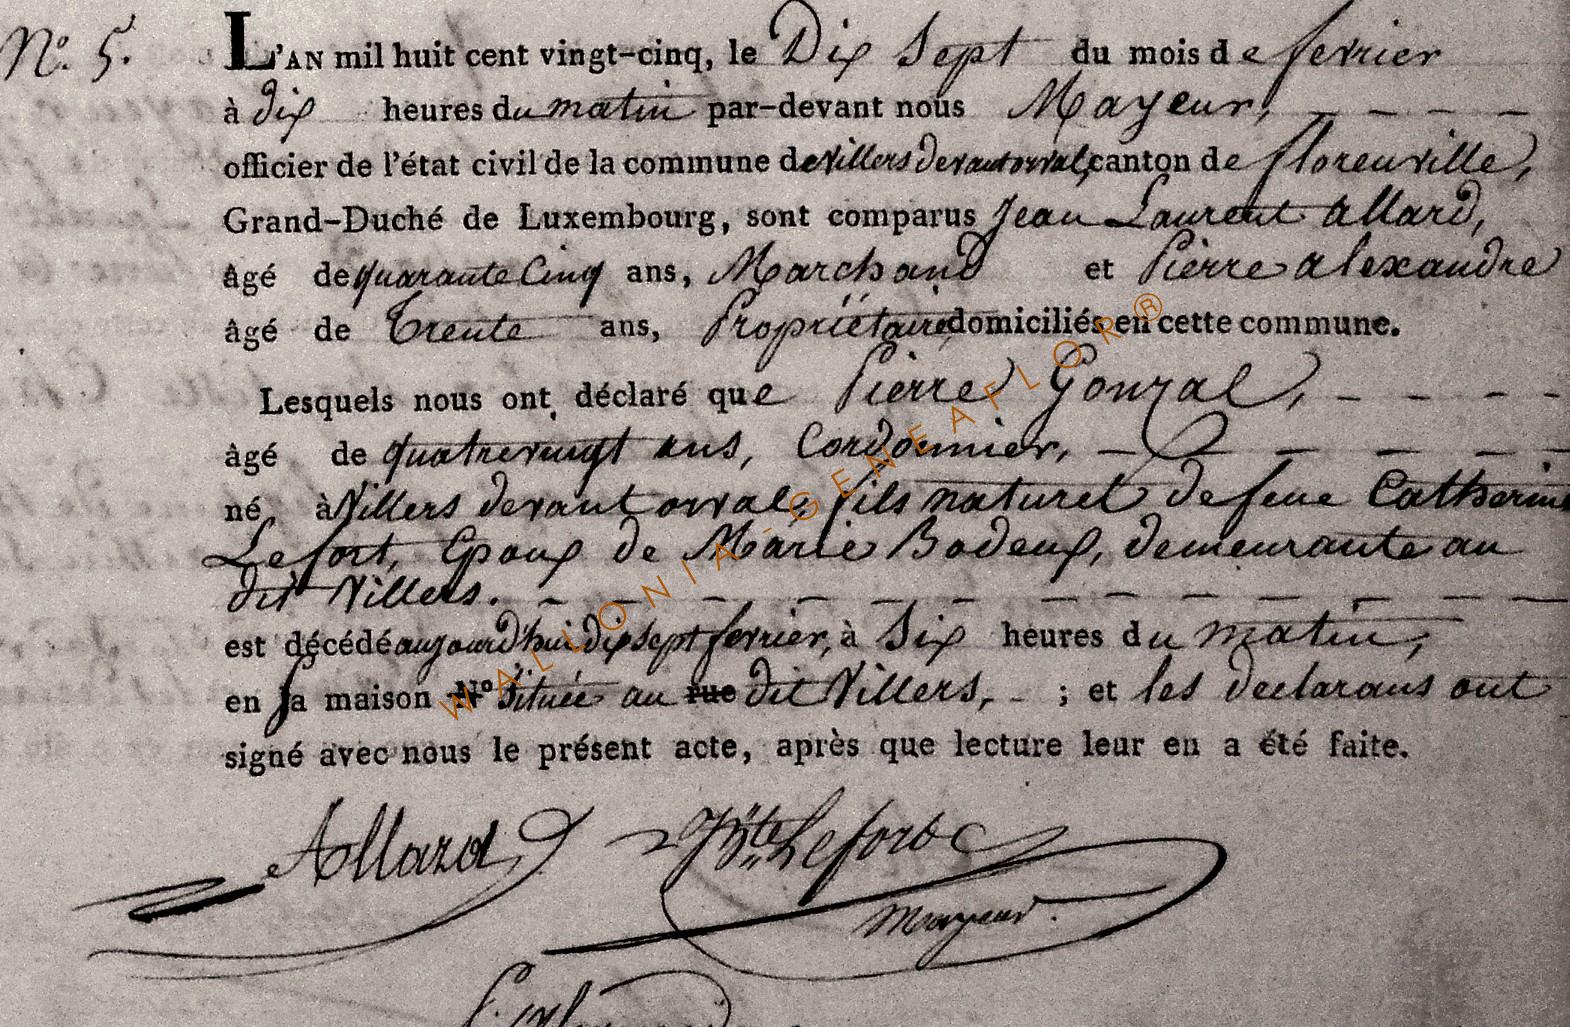 N.° 5. L'AN mil huit cent vingt-cinq, le Dix Sept du mois de fevrier
à dix heures du matin par-devant nous Mayeur,
officier de l'état civil de la commune de villers devant orval, canton de florenville,
Grand-Duché de Luxembourg, sont comparus Jean Laurent allard,
âgé de quarante Cinq ans, Marchand et Pierre alexandre
âgé de Trente ans, Propriétaire, domiciliés en cette commune.
Lesquels nous ont déclaré que Pierre Gonzal,
âgé de quatrevingt ans, Cordonnier,
né à Villers devant orval, fils naturel de feue Catherine
Lefort, Epoux de Marie Bodeux, demeurante au
dit Villers.
est décédé aujourd'hui dix sept fevrier, à Six heures du matin,
en sa maison N° située au rue dit Villers, ; et les declarans ont
signé avec nous le présent acte, après que lecture leur en a été faite.
Allard JBte Lefort
Mayeur.
WALLONIA-GENEAFLOR®